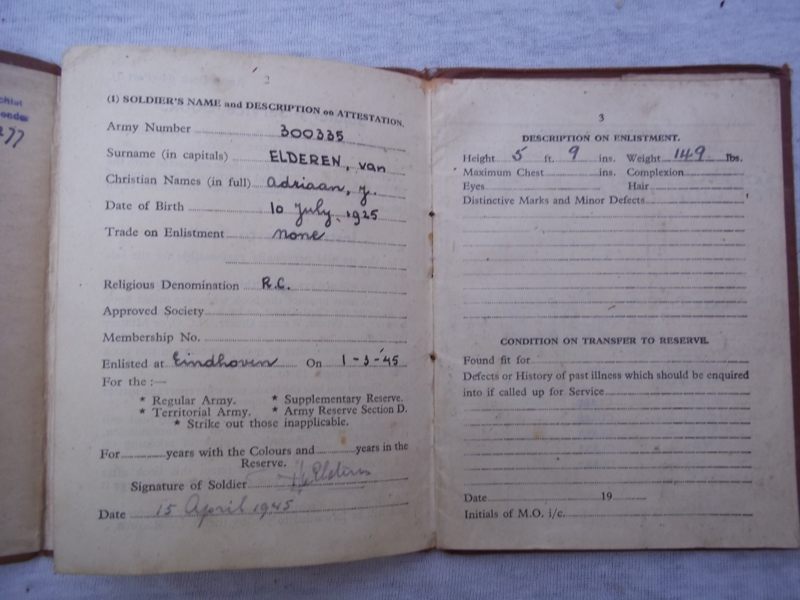 277
2
(1) SOLDIER'S NAME and DESCRIPTION on ATTESTATION.
Army Number 300335
Surname (in capitals) ELDEREN, van
Christian Names (in full) Adriaan, J.
Date of Birth 10 July, 1925
Trade on Enlistment none
Religious Denomination R.C.
Approved Society
Membership No.
Enlisted at Eindhoven On 1-3-45
For the :—
* Regular Army. * Supplementary Reserve.
* Territorial Army. * Army Reserve Section D.
* Strike out those inapplicable.
For years with the Colours and years in the
Reserve.
Signature of Soldier
Date 15 April 1945
3
DESCRIPTION ON ENLISTMENT.
Height 5 ft. 9 ins. Weight 149 lbs.
Maximum Chest ins. Complexion
Eyes Hair
Distinctive Marks and Minor Defects
CONDITION ON TRANSFER TO RESERVE.
Found fit for
Defects or History of past illness which should be enquired
into if called up for Service
Date 19
Initials of M.O. i/c.